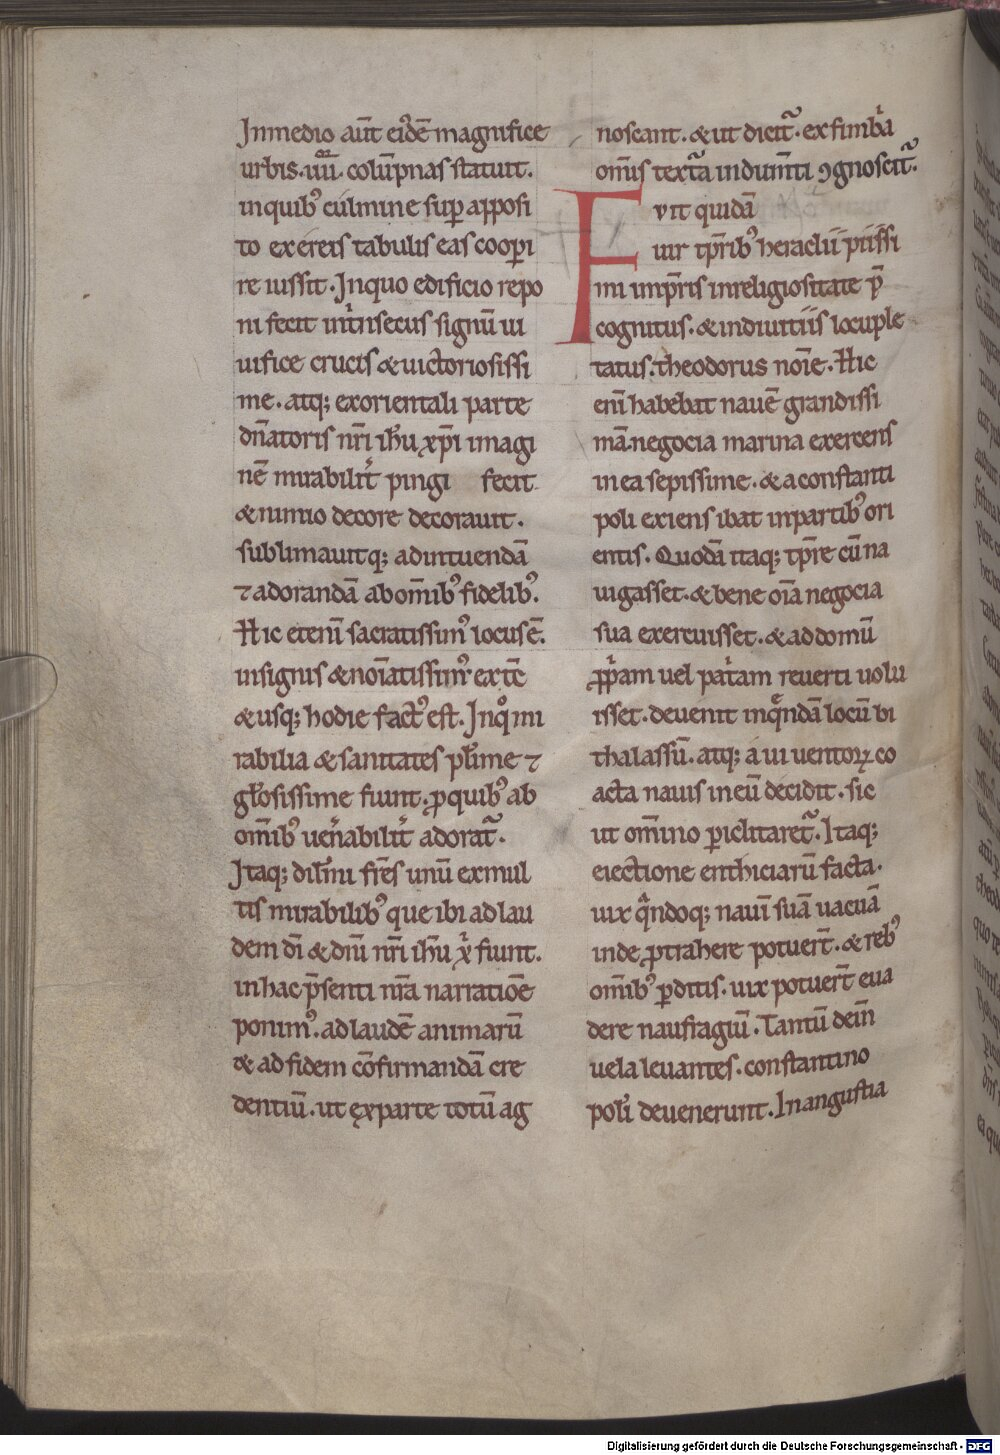 Inmedio aut̄ eiꝰdē magnifice
urbis. uͣͣıı. colūpnas statuit.
inquibꝰ culmine sup apposi
to exereis tabulis eas coopi
re iussit. Inquo edificio repo
ni fecit int̄nsecus signū ui
uifice crucis & uictoriosissi
me. atq; exorientali parte
dn̄atoris nr̄i ih̄u xp̄i imagi
nē mirabilit̄ pingi fecit
& nimio decore decorauit.
sublimauitq; adintuendā
⁊ adorandā abom̄ibꝰ fidelibꝰ.
Hic etenī sacratissimꝰ locus ē.
insignis & noīatissimꝰ extē
& usq; hodie factꝰ est. Inqͦ mi
rabilia & sanitates plꝰime ⁊
glo̅sissime fiunt. ꝓquibꝰ ab
om̄ibꝰ uen̄abilit̄ adorat᷑.
Itaq; dilc̄ini fr̄es unū exmul
tis mirabilibꝰ que ibi adlau
dem dī & dnī nr̄i ih̄u xⁱ fiunt.
inhac p̄senti nr̄a narratiōe
ponimꝰ. adlaudē animarū
& adfidem cōfirmandā cre
dentiū. ut ęxparte totū ag
noscant. & ut dicit᷑. exfimbⁱa
om̄is text᷑a indum̄ti ꝯgnoscit᷑.
Fvit quidā
uir tp̄ribꝰ heraclii piissi
mi imp̄ris inreligiositate p̄
cognitus. & indiuitiis locuple
tatus. theodorus noīe. Hic
enī habebat nauē grandissi
mā. negocia marina exercens
in ea sepissime. & aconstanti
poli exiens ibat inpartibꝰ ori
entis. Quodā itaq; tp̄re cū na
uigasset. & bene oīa negocia
sua exercuisset. & addomū
ꝓpⁱam uel patⁱam reuerti uolu
isset. deuenit inqͣndā locū bi
thalassū. atq; a ui uentoꝝ co
acta nauis ineū decidit. sic
ut om̄ino ꝑiclitaret᷑. Itaq;
eiectione enthiciarū facta.
uix qͣndoq; nauī suā uacuā
inde ꝓtrahere potuer̄t. & rebꝰ
om̄ibꝰ ꝑditis. uix potuer̄t eua
dere naufragiū. Tantū dein̄
uela leuantes. constantino
poli deuenerunt. In angustia